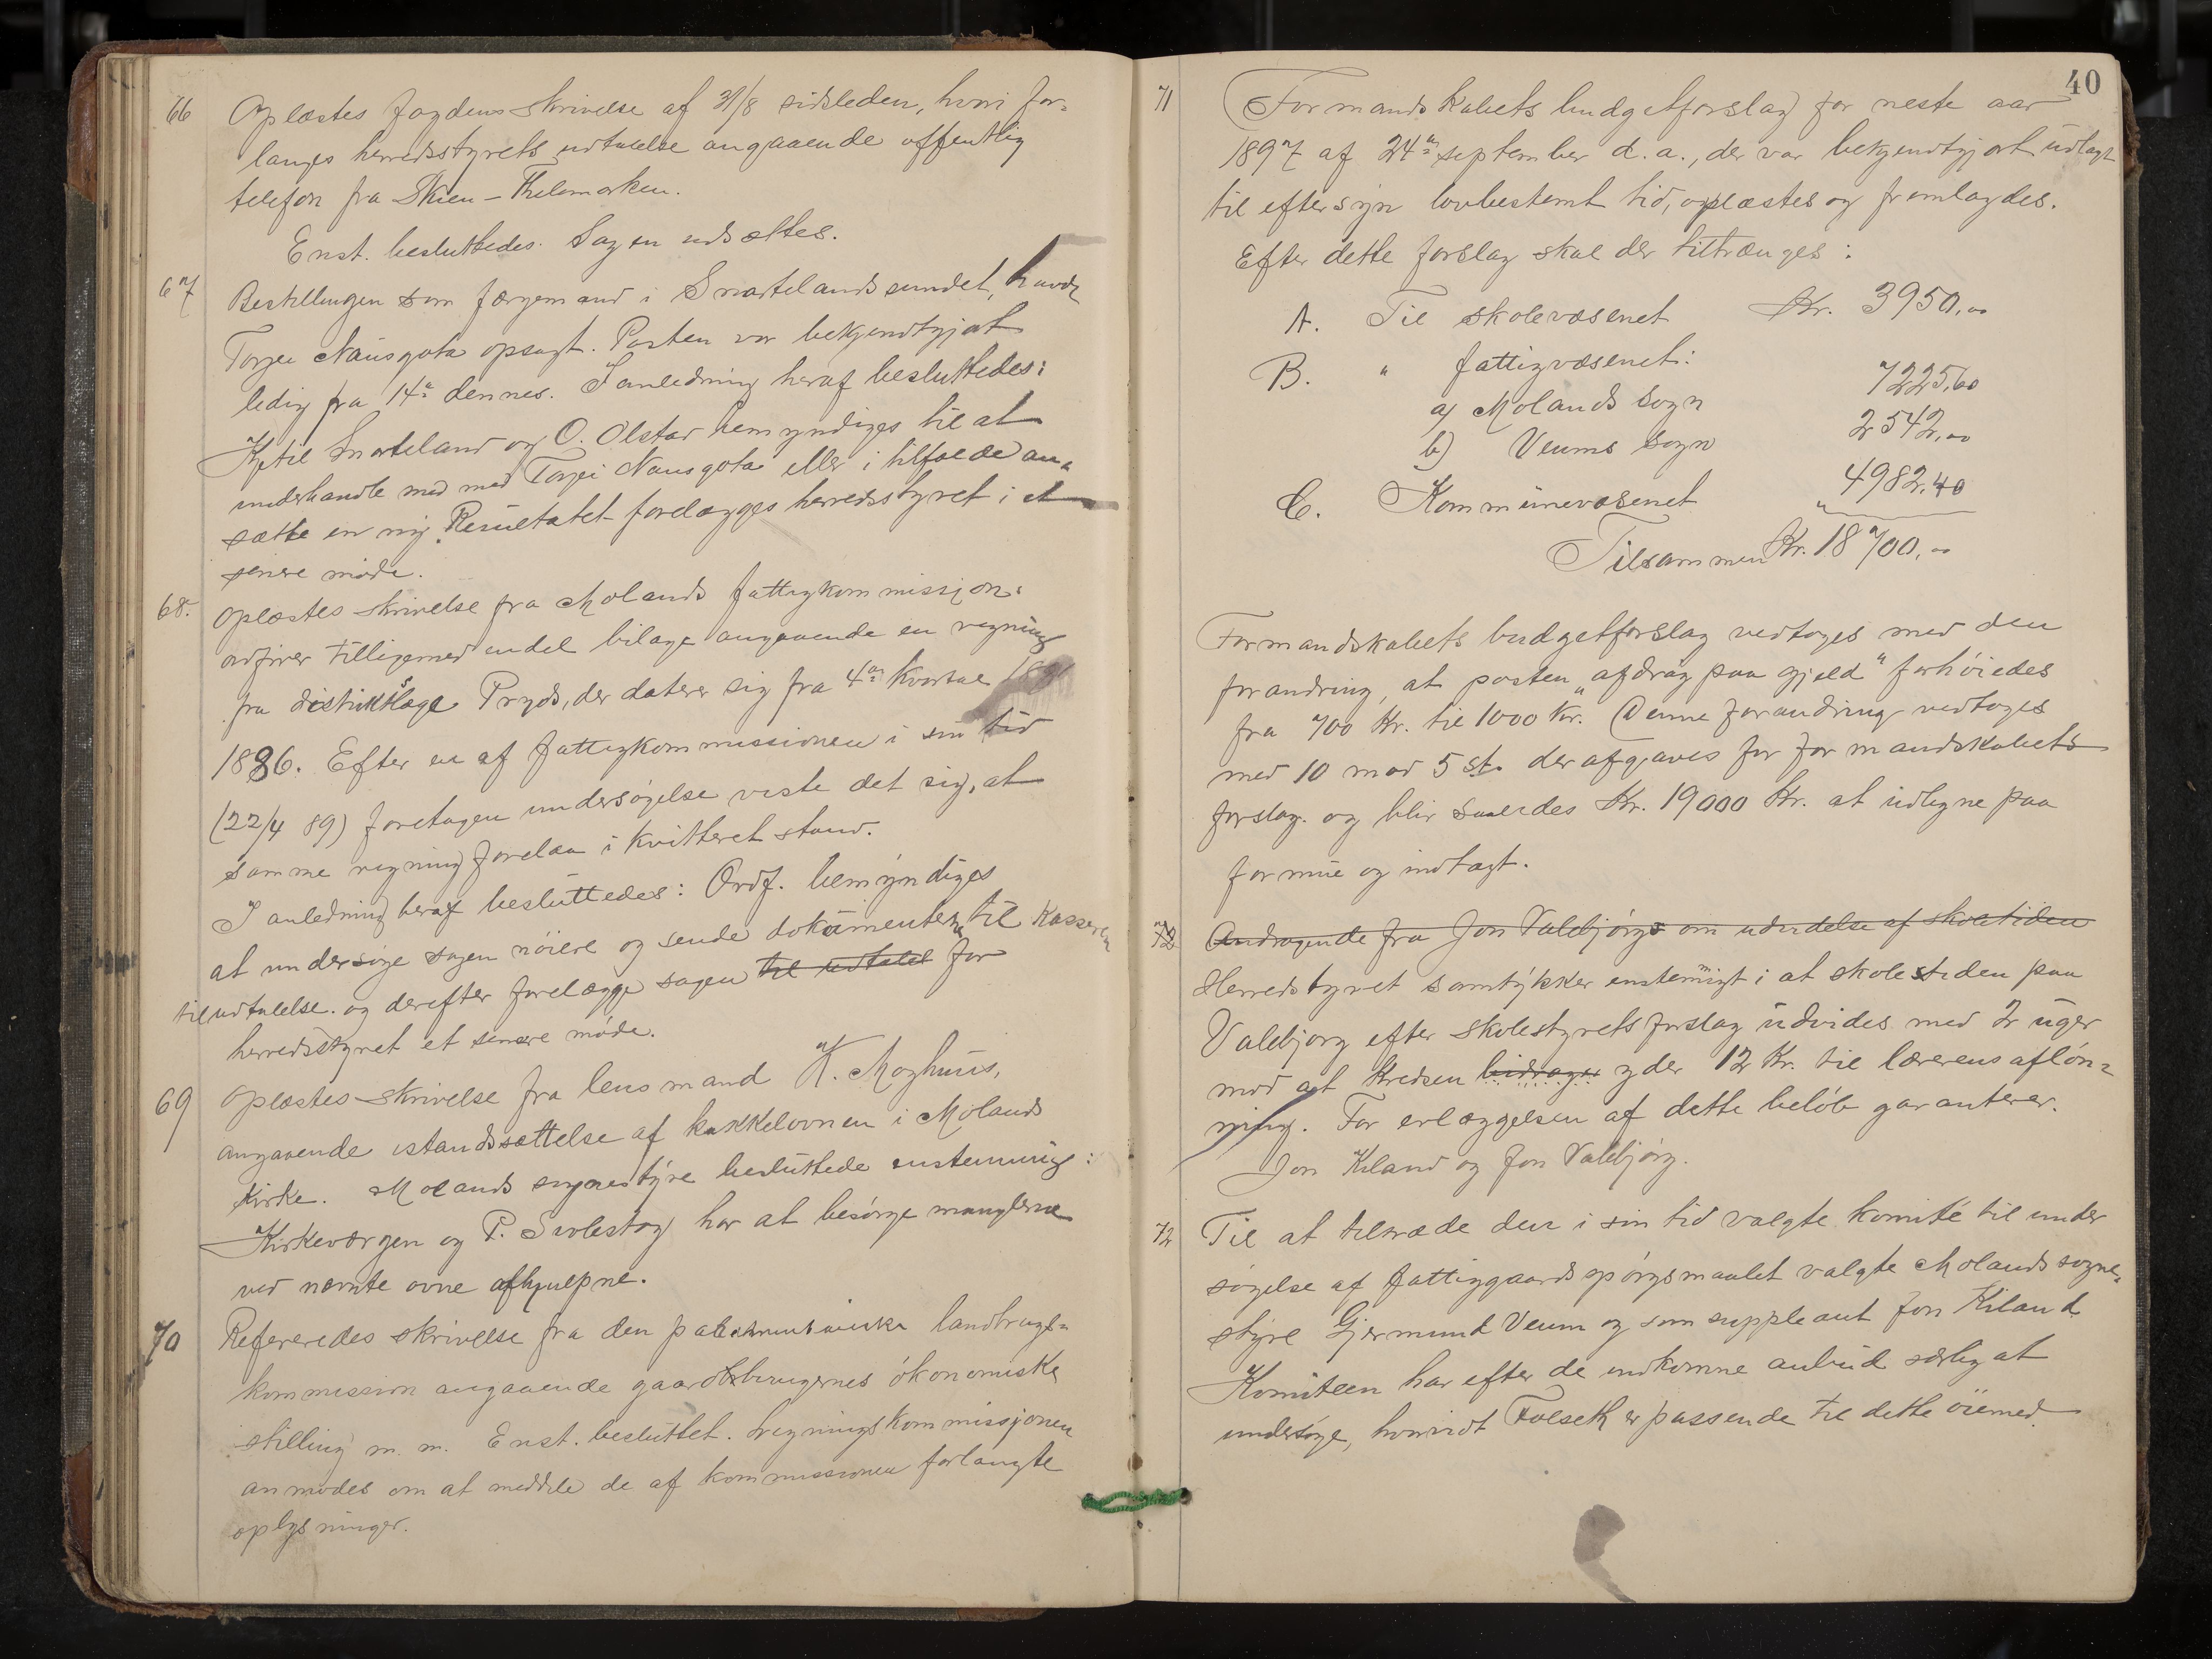 66 Oplæstes fogdens skrivelse af 31/8 sidsleden, hvori for-
langes herredsstyrets udtalelse angaaende offentlig
telefon fra Skien – Thelemarken.
Enst. besluttedes. Sagen udsættes.
67 Bestillingen som færgemand i Snartelandssundet, havde
Torjei Nausgota opsagt. Posten var bekjendtgjort
ledig fra 14de dennes. I anledning heraf besluttedes:
Kjetil Snarteland og O. Olstad bemyndiges til at
underhandle med med Torjei Nausgota eller i tilfælde an-
sætte en ny. Resultatet forelægges herredsstyret i et
senere møde.
68. Oplæstes skrivelse fra Molands fattigkommissjons
ordfører tilligemed endel bilage angaaende en regning
fra distriktslæge Pryds, der daterer sig fra 4de kvartal
1886. Efter en af fattigkommissionen i sin tid
(22/4 89) foretagen undersøgelse viste det sig, at
samme regning forelaa i kvitteret stand.
I anledning heraf besluttedes: Ordf. bemyndiges
at undersøge sagen nöiere og sende dokumenterne til kasseren
til udtalelse. og derefter forelægge sagen til udtalel for
herredsstyret et senere møde.
69 Oplæstes skrivelse fra lensmand K. Moghuus,
angaaende istandsættelse af kakkelovnen i Molands
kirke. Molands sognestyre besluttede enstemmig:
Kirkeværgen og P. Svolestog har at besørge manglerne
ved nævnte ovne afhjulpne.
70 Refereredes skrivelse fra den parlamentariske landbrugs-
kommission angaaende gaardbrugernes økonomiske
stilling m. m. Enst. besluttet. Ligningskommissjonen
anmodes om at meddele de af kommissionen forlangte
oplysninger.
40
71 Formandskabets budgetforslag for neste aar
1897 af 24de september d. a., der var bekjendtgjort udlagt
til eftersyn lovbestemt tid, oplæstes og fremlagdes.
Efter dette forslag skal der tiltrænges:
A. Til skolevæsenet Kr. 3950,00
B. " fattigvæsenet:
a) Molands sogn 7225,60
b) Veums sogn 2542,00
C. Kommunevæsenet " 4982,40
Tilsammen Kr. 18700,00
Formandskabets budgetforslag vedtoges med den
forandring, at posten "afdrag paa gjæld" forhöiedes
fra 700 Kr. til 1000 Kr. (Denne forandring vedtoges
med 10 mod 5 st. der afgaves for formandskabets
forslag. og blir saaledes Kr. 19000 Kr. at udligne paa
formue og indtægt.
72 Andragende fra Jon Valebjørgs om udvidelse af skoletiden
Herredstyret samtykker enstemmigt i at skolestiden paa
Valebjørg efter skolestyrets forslag udvides med 2 uger
mod at kredsen bidrager yder 12 Kr. til lærerens afløn-
ning. For erlæggelsen af dette beløb garanterer.
Jon Kiland og Jon Valebjørg.
72 Til at tiltræde den i sin tid valgte komité til under
søgelse af fattiggaardspørgsmaalet valgte Molands sogne-
styre Gjermund Veum og som suppleant Jon Kiland.
Komiteen har efter de indkomne anbud særlig at
undersøge, hvorvidt Folseth er passende til dette öiemed.